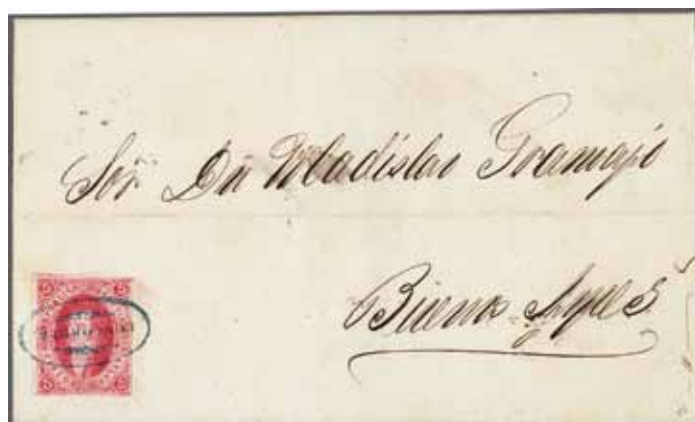 Sōr Dn Wladislao Gramajo
Buenos Ayres
5 5
5 5